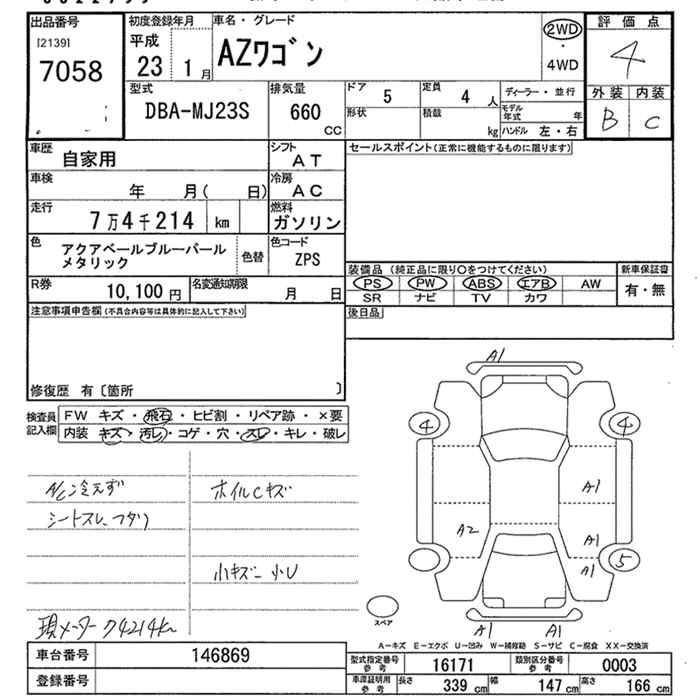 出品番号
[2139]
7058
初度登録年月
平成
23 1 月
車名・グレード
AZワゴン
2WD
・
4WD
評価点
4
外装 内装
B C
型式
DBA-MJ23S
排気量
660
CC
ドア
5
定員
4 人
形状
積載
kg
ディーラー・並行
モデル年式 年
ハンドル 左・右
車歴
自家用
シフト
AT
車検
年 月( 日)
冷房
AC
走行
7万4千214 km
燃料
ガソリン
色
アクアベールブルーパール
メタリック
色替
色コード
ZPS
R券
10,100 円
名変通知期限
月 日
セールスポイント(正常に機能するものに限ります)
装備品(純正品に限り〇をつけてください)
PS PW ABS エアB AW
SR ナビ TV カワ
新車保証書
有・無
後日品
注意事項申告欄(不具合内容等は具体的に記入して下さい)
修復歴 有〔箇所 〕
検査員記入欄
FW キズ・飛石・ヒビ割・リペア跡・×要
内装 キズ・汚レ・コゲ・穴・スレ・キレ・破レ
A/C冷えず
シートスレ、フタリ
ホイルCキズ
小キズー小U
現メーター74214km
A1
4 4
A1
A2
A1
A1
5
A1 A1
スペア
A-キズ E-エクボ U-凹み W-補修跡 S-サビ C-腐食 XX-交換済
車台番号
146869
登録番号
型式指定番号参考
16171
類別区分番号参考
0003
車庫証明用参考
長さ 339 cm 幅 147 cm 高さ 166 cm